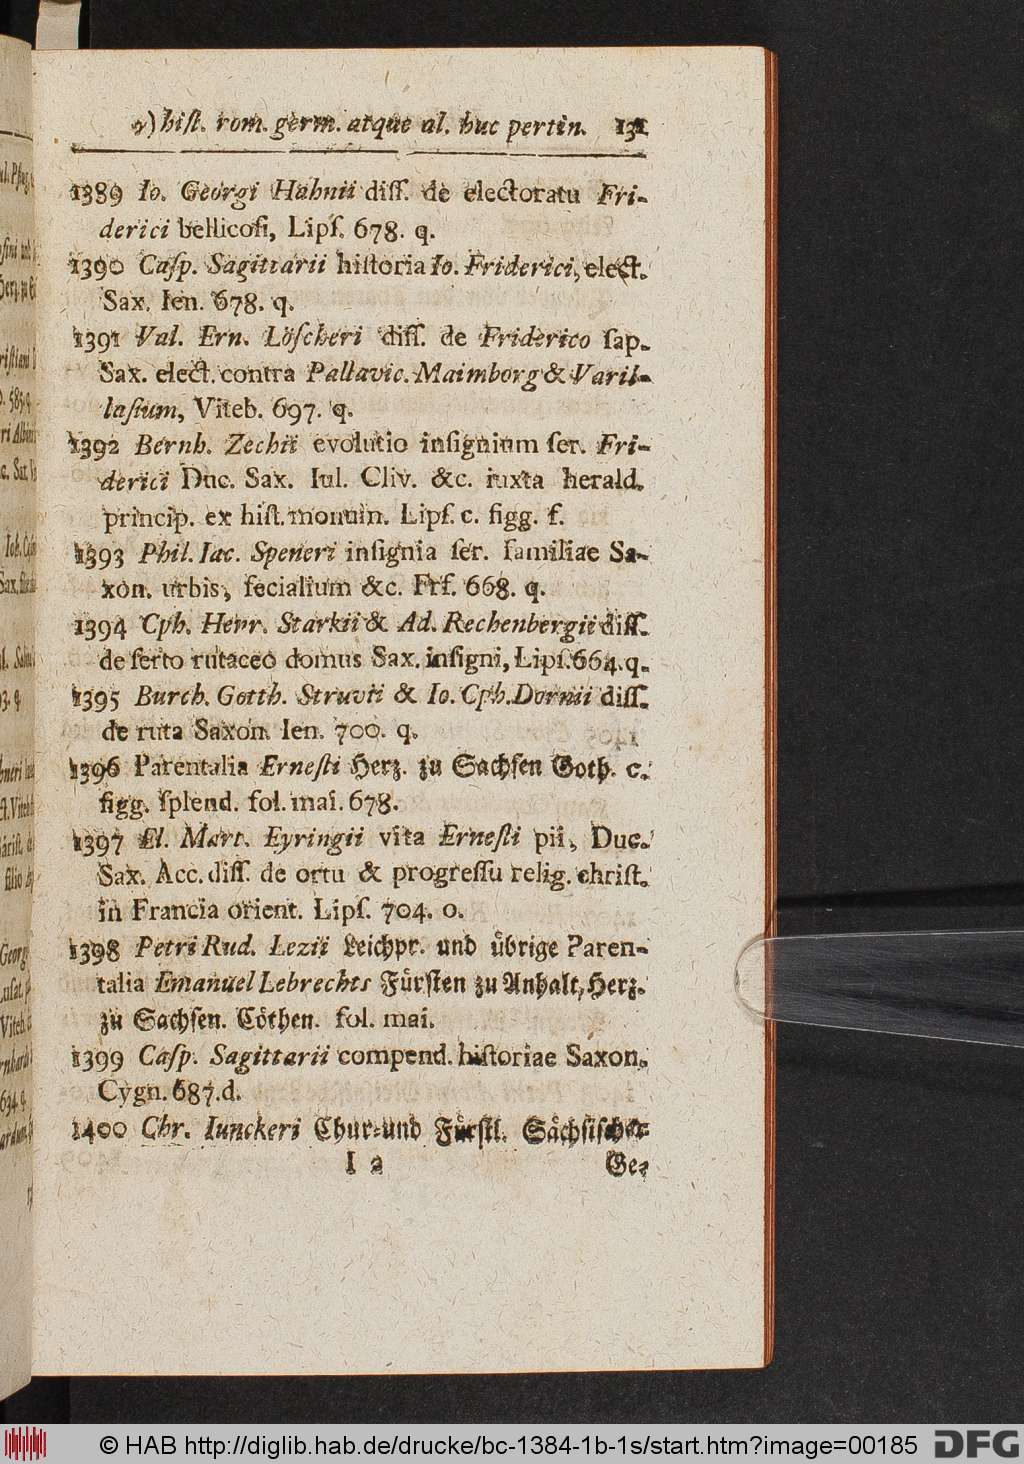 γ) hiſt. rom. germ. atque al. huc pertin. 131
1389 Io. Georgi Hahnii diſſ. de electoratu Fri-
derici bellicoſi, Lipſ. 678. q.
1390 Caſp. Sagittarii hiſtoria Io. Friderici, elect.
Sax. Ien. 678. q.
1391 Val. Ern. Löſcheri diſſ. de Friderico ſap.
Sax. elect. contra Pallavic. Maimborg & Varil-
laſium, Viteb. 697. q.
1392 Bernh. Zechii evolutio inſignium ſer. Fri-
derici Duc. Sax. Iul. Cliv. &c. iuxta herald.
princip. ex hiſt. monum. Lipſ. c. figg. f.
1393 Phil. Iac. Speneri inſignia ſer. familiae Sa-
xon. urbis, fecialium &c. Frf. 668. q.
1394 Cph. Henr. Starkii & Ad. Rechenbergii diſſ.
de ſerto rutaceo domus Sax. inſigni, Lipſ. 664. q.
1395 Burch. Gotth. Struvii & Io. Cph. Dornii diſſ.
de ruta Saxon. Ien. 700. q.
1396 Parentalia Erneſti Herz. zu Sachſen Goth. c.
figg. ſplend. fol. mai. 678.
1397 El. Mart. Eyringii vita Erneſti pii, Duc.
Sax. Acc. diſſ. de ortu & progreſſu relig. chriſt.
in Francia orient. Lipſ. 704. o.
1398 Petri Rud. Lezii Leichpr. und übrige Paren-
talia Emanuel Lebrechts Fürſten zu Anhalt, Herz.
zu Sachſen. Cöthen. fol. mai.
1399 Caſp. Sagittarii compend. hiſtoriae Saxon.
Cygn. 687. d.
1400 Chr. Iunckeri Chur- und Fürſtl. Sächſiſcher
I 2 Ge-
© HAB http://diglib.hab.de/drucke/bc-1384-1b-1s/start.htm?image=00185 DFG